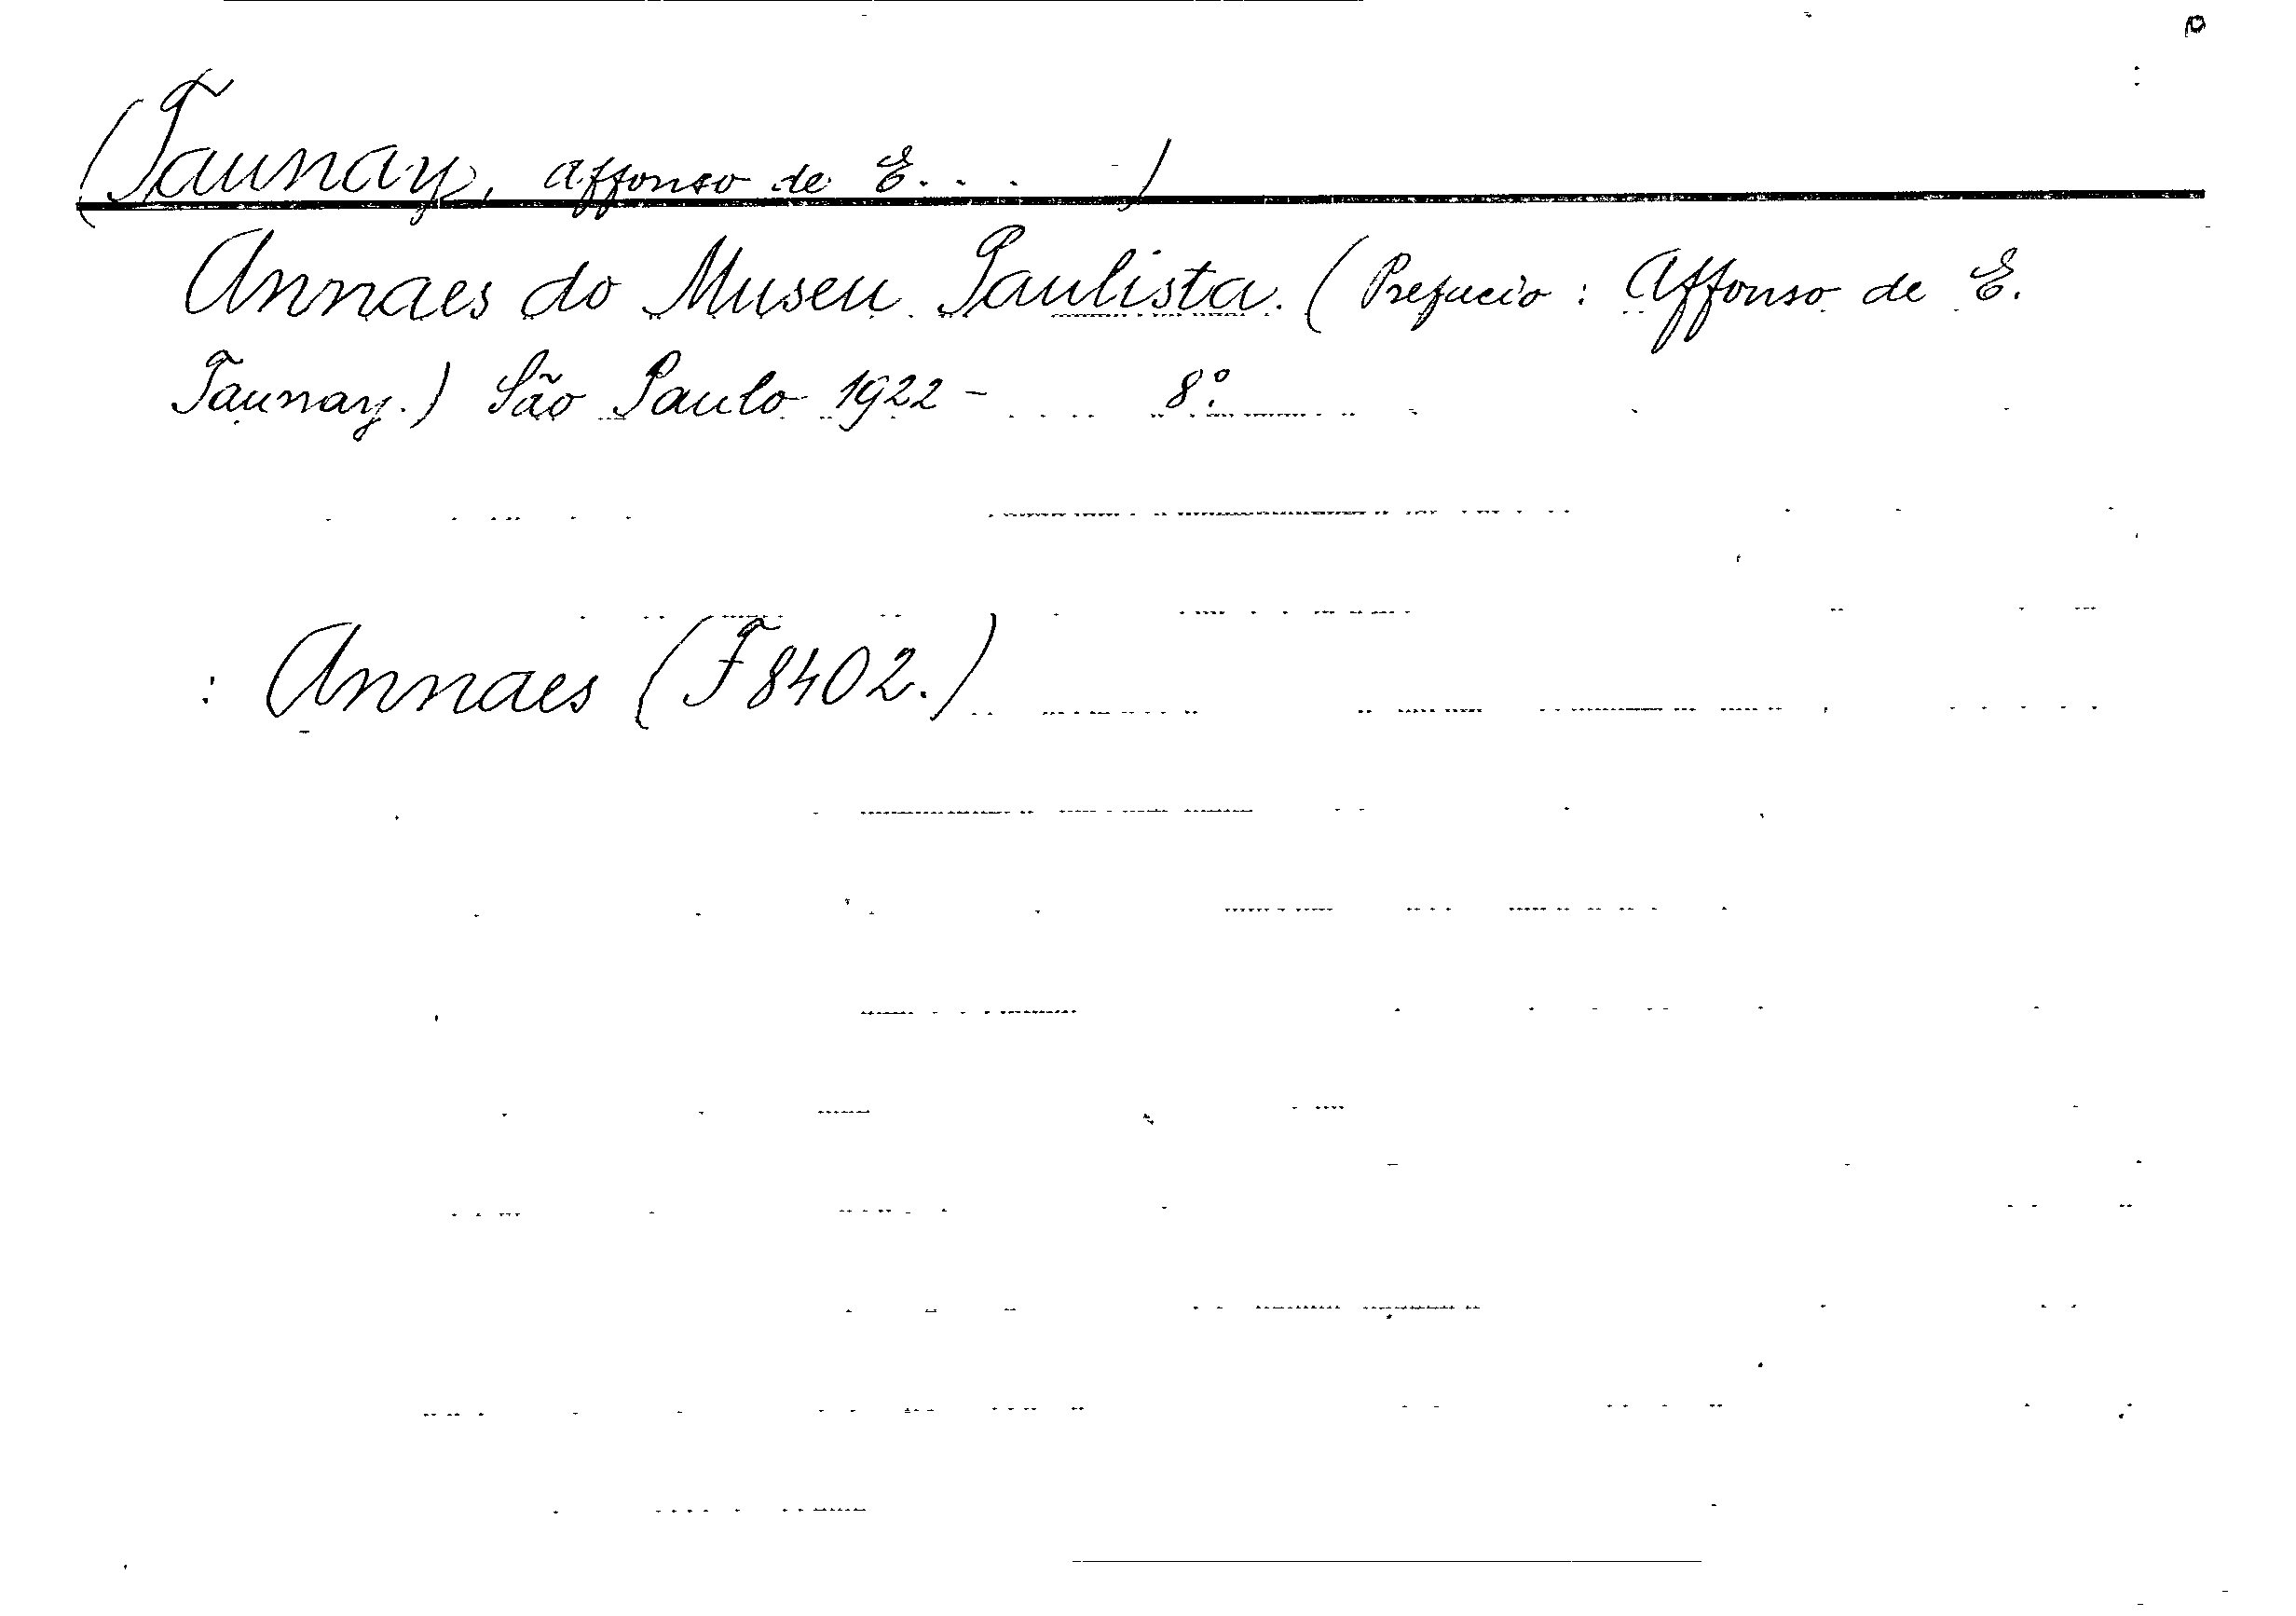 (Taunay, Affonso de E. . . )
Annaes do Museu Paulista. (Prefacio: Affonso de E.
Taunay.) São Paulo 1922 - 8º.
: Annaes (F 8402.)